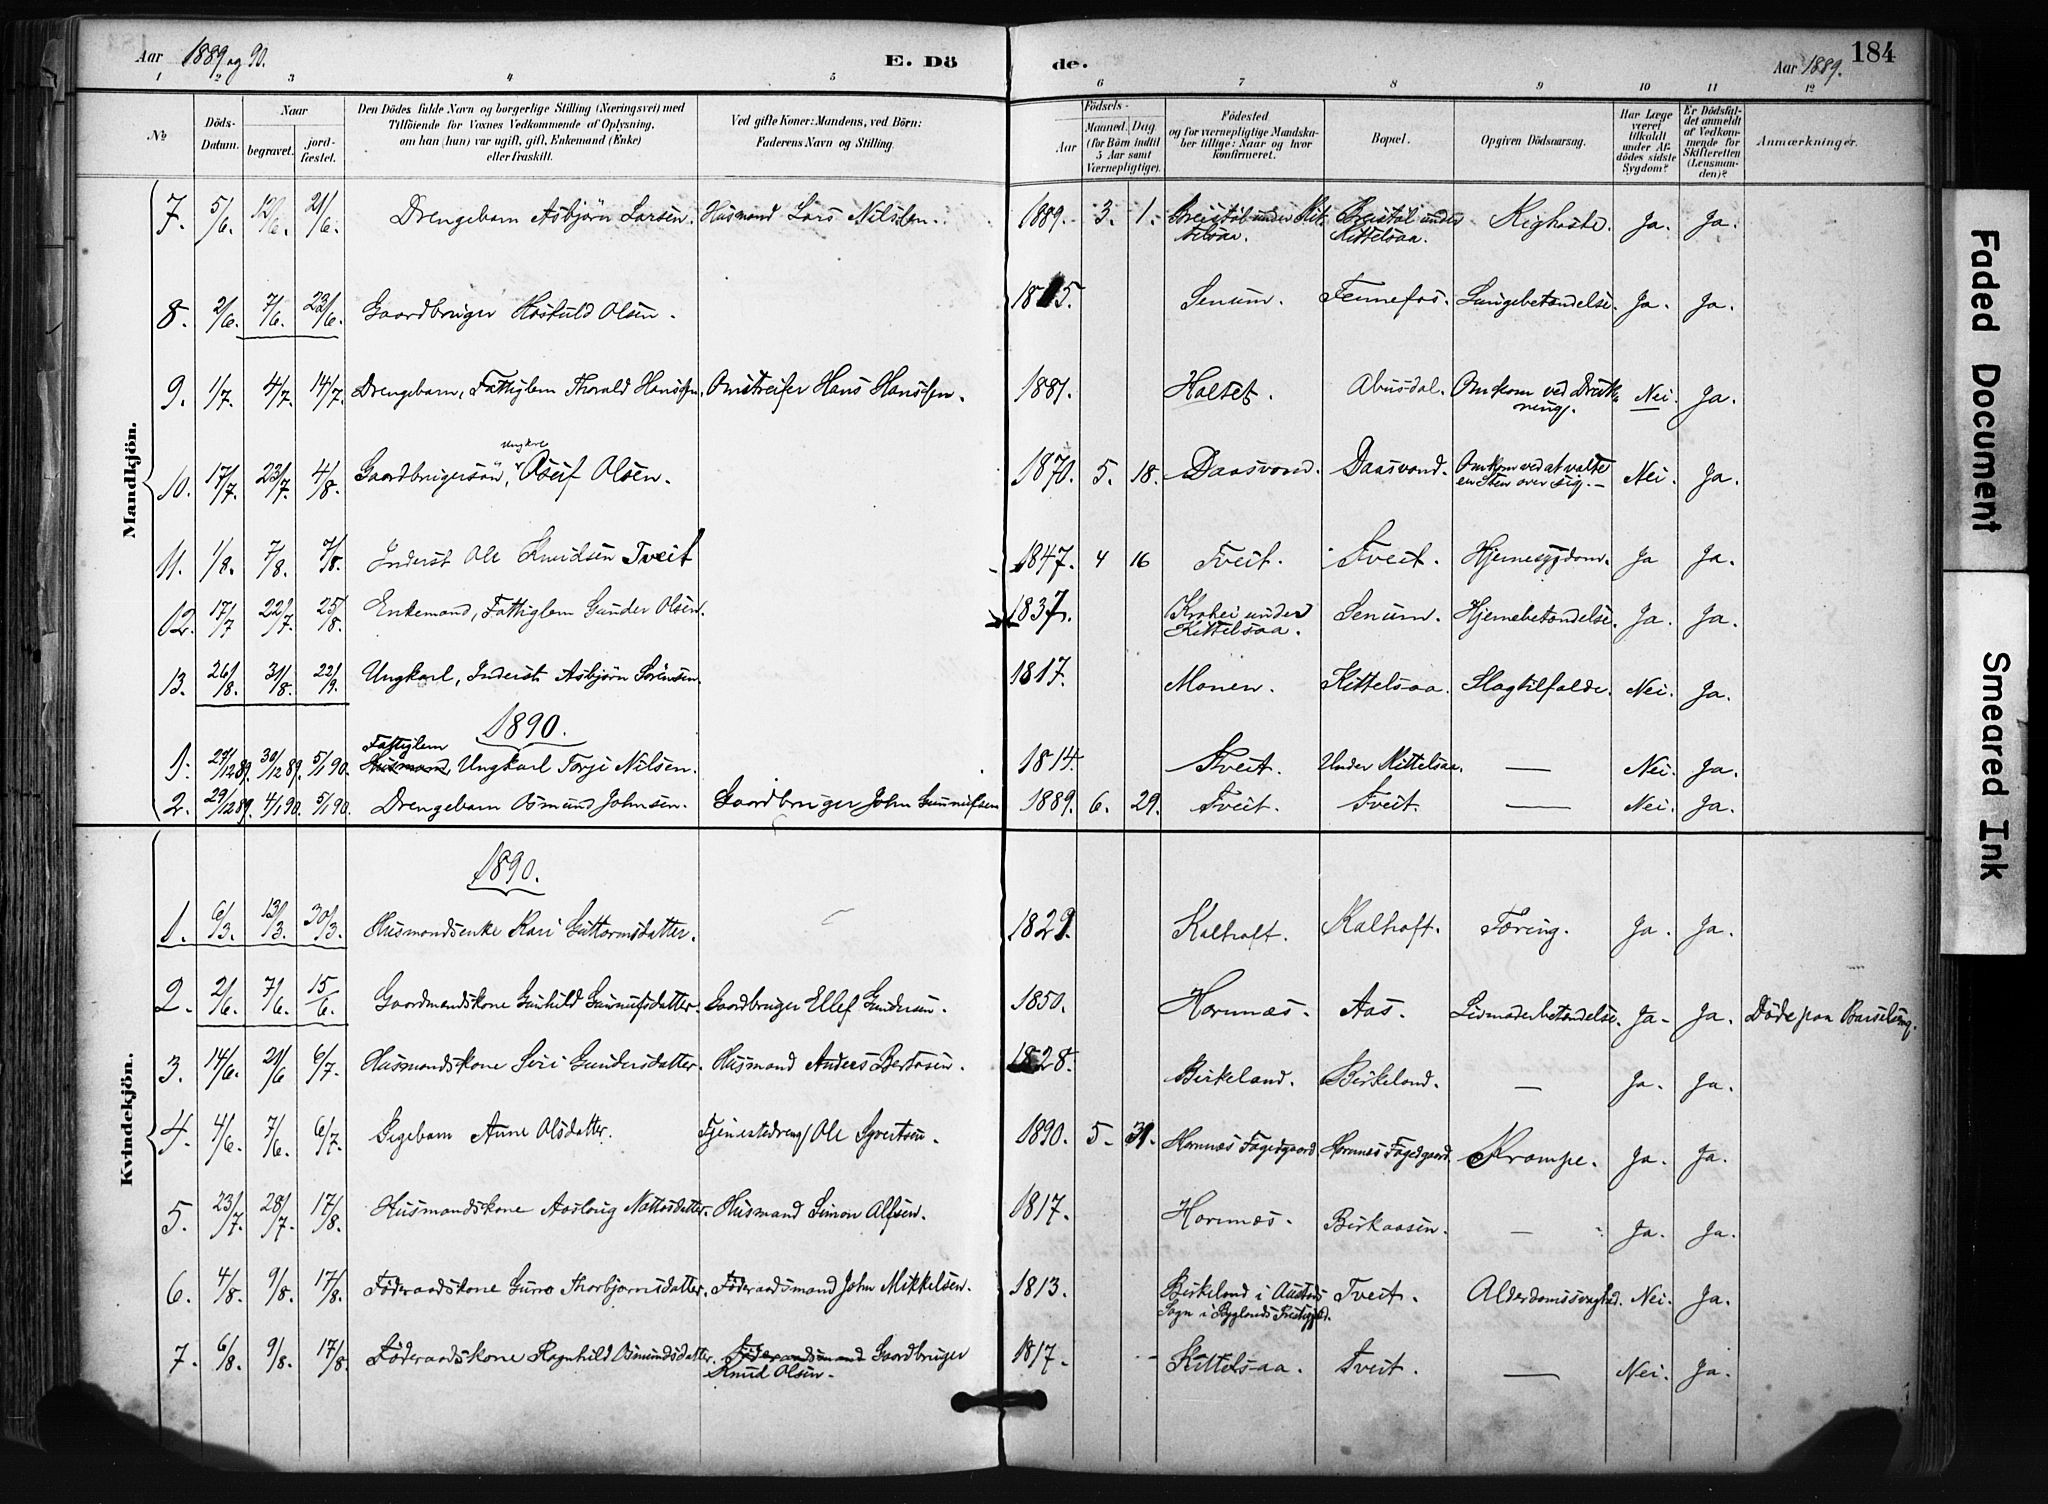 Aar 1889 og 90.
E. Dö
de.
Aar 1889.
184
1 2 3 4 5 6 7 8 9 10 11 12
No
Döds-
Datum.
Naar
begravet.
jord-
fæstet.
Den Dödes fulde Navn og borgerlige Stilling (Næringsvei) med
Tilföiende for Voxnes Vedkommende af Oplysning,
om han (hun) var ugift, gift, Enkemand (Enke)
eller fraskilt.
Ved gifte Koner: Mandens, ved Börn:
Faderens Navn og Stilling.
Födsels-
Aar
Maaned.
Dag
(for Börn indtil
5 Aar samt
Værnepligtige).
Födested
og for værnepligtige Mandska-
ber tillige: Naar og hvor
konfirmeret.
Bopæl.
Opgiven Dödsaarsag.
Har Læge
været
tilkaldt
under Af-
dödes sidste
Sygdom?
Er Dödsfal-
det anmeldt
af Vedkom-
mende for
Skifteretten
(Lensman-
den)?
Anmærkninger.
Mandkjön.
7. 5/6. 12/6. 21/6. Drengebarn Asbjörn Larsen. Husmand Lars Nilssen. 1889. 3. 1. Breistöl under Kit-telsaa. Breistöl under Kittelsaa. Kighoste. Ja. Ja.
8. 2/6. 7/6. 23/6. Gaardbruger Höskuld Olsen. 1815. Senum. Fennefos. Lungebetændelse. Ja. Ja.
9. 1/7. 4/7. 14/7. Drengebarn, Fattiglem Thorald Hanssen. Omstreifer Hans Hanssen. 1881. Haltet. Abusdal. Omkom ved Drukning. Nei. Ja.
10. 17/7. 23/7. 4/8. Gaardbrugersön, Ungkarl Oseif Olsen. 1870. 5. 18. Daasvand. Daasvand. Omkom ved at vælte en Sten over sig. Nei. Ja.
11. 1/8. 7/8. 7/8. Inderst Ole Knudsen Tveit 1847. 4 16 Tveit. Tveit. Hjernesygdom. Ja Ja.
12. 17/7 22/7. 25/8. Enkemand, Fattiglem Gunder Olsen. 1837. Krokei under Kittelsaa. Senum. Hjernebetændelse. Ja. Ja.
13. 26/8. 31/8. 22/9. Ungkarl, Inderst Asbjörn Sörensen. 1817. Monen. Kittelsaa. Slagtilfælde. Nei. Ja.
1890.
1. 27/12 89. 30/12 89. 5/1 90. Fattiglem Husmand, Ungkarl Torje Nilsen. 1814. Tveit. Under Kittelsaa. — Nei. Ja.
2. 29/12 89. 4/1 90. 5/1 90. Drengebarn Osmund Johnsen. Gaardbruger John Gunnufsen 1889. 6. 29. Tveit. Tveit. — Nei. Ja.
Kvindekjön.
1890.
1. 6/3. 13/3. 30/3. Husmandsenke Kari Guttormsdatter. 1829. Kalhoft. Kalhoft. Tæring. Ja. Ja.
2. 2/6. 7/6. 15/6. Gaardmandskone Gunhild Gunnufsdatter. Gaardbruger Ellef Gundersen. 1850. Hornnæs. Aas. Livmoderbetændelse. Ja. Ja. Döde paa Barselseng.
3. 14/6. 21/6 6/7. Husmandskone Siri Gundersdatter. Husmand Anders Bertosen. 1828. Birkeland. Birkeland. — Ja. Ja.
4. 4/6. 7/6. 6/7. Pigebarn Anne Olsdatter. Tjenestedreng Ole Syvertsen. 1890. 5. 31. Hornnæs Fogedgaard Hornnæs Fogedgaard. Krampe. Ja. Ja.
5. 23/7. 28/7. 17/8. Husmandskone Aaslaug Nattosdatter. Husmand Simon Alfsen. 1817. Hornnæs. Birkaasen. — Ja. Ja.
6. 4/8. 9/8. 17/8. Föderaadskone Guro Thorbjørnsdatter. Föderaadsmand John Mikkelsen. 1813. Birkeland i Austad Sogn i Byglands Præstegjeld. Tveit. Alderdomssvaghed. Nei. Ja.
7. 6/8. 9/8. 17/8. Föderaadskone Ragnhild Osmundsdatter. Föderaadsmand Gaardbruger Knud Olsen. 1817. Kittelsaa. Tveit. — Nei. Ja.
Faded Document
Smeared Ink